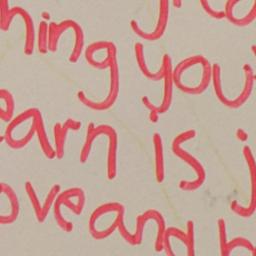 hing you
earn is j
ove and